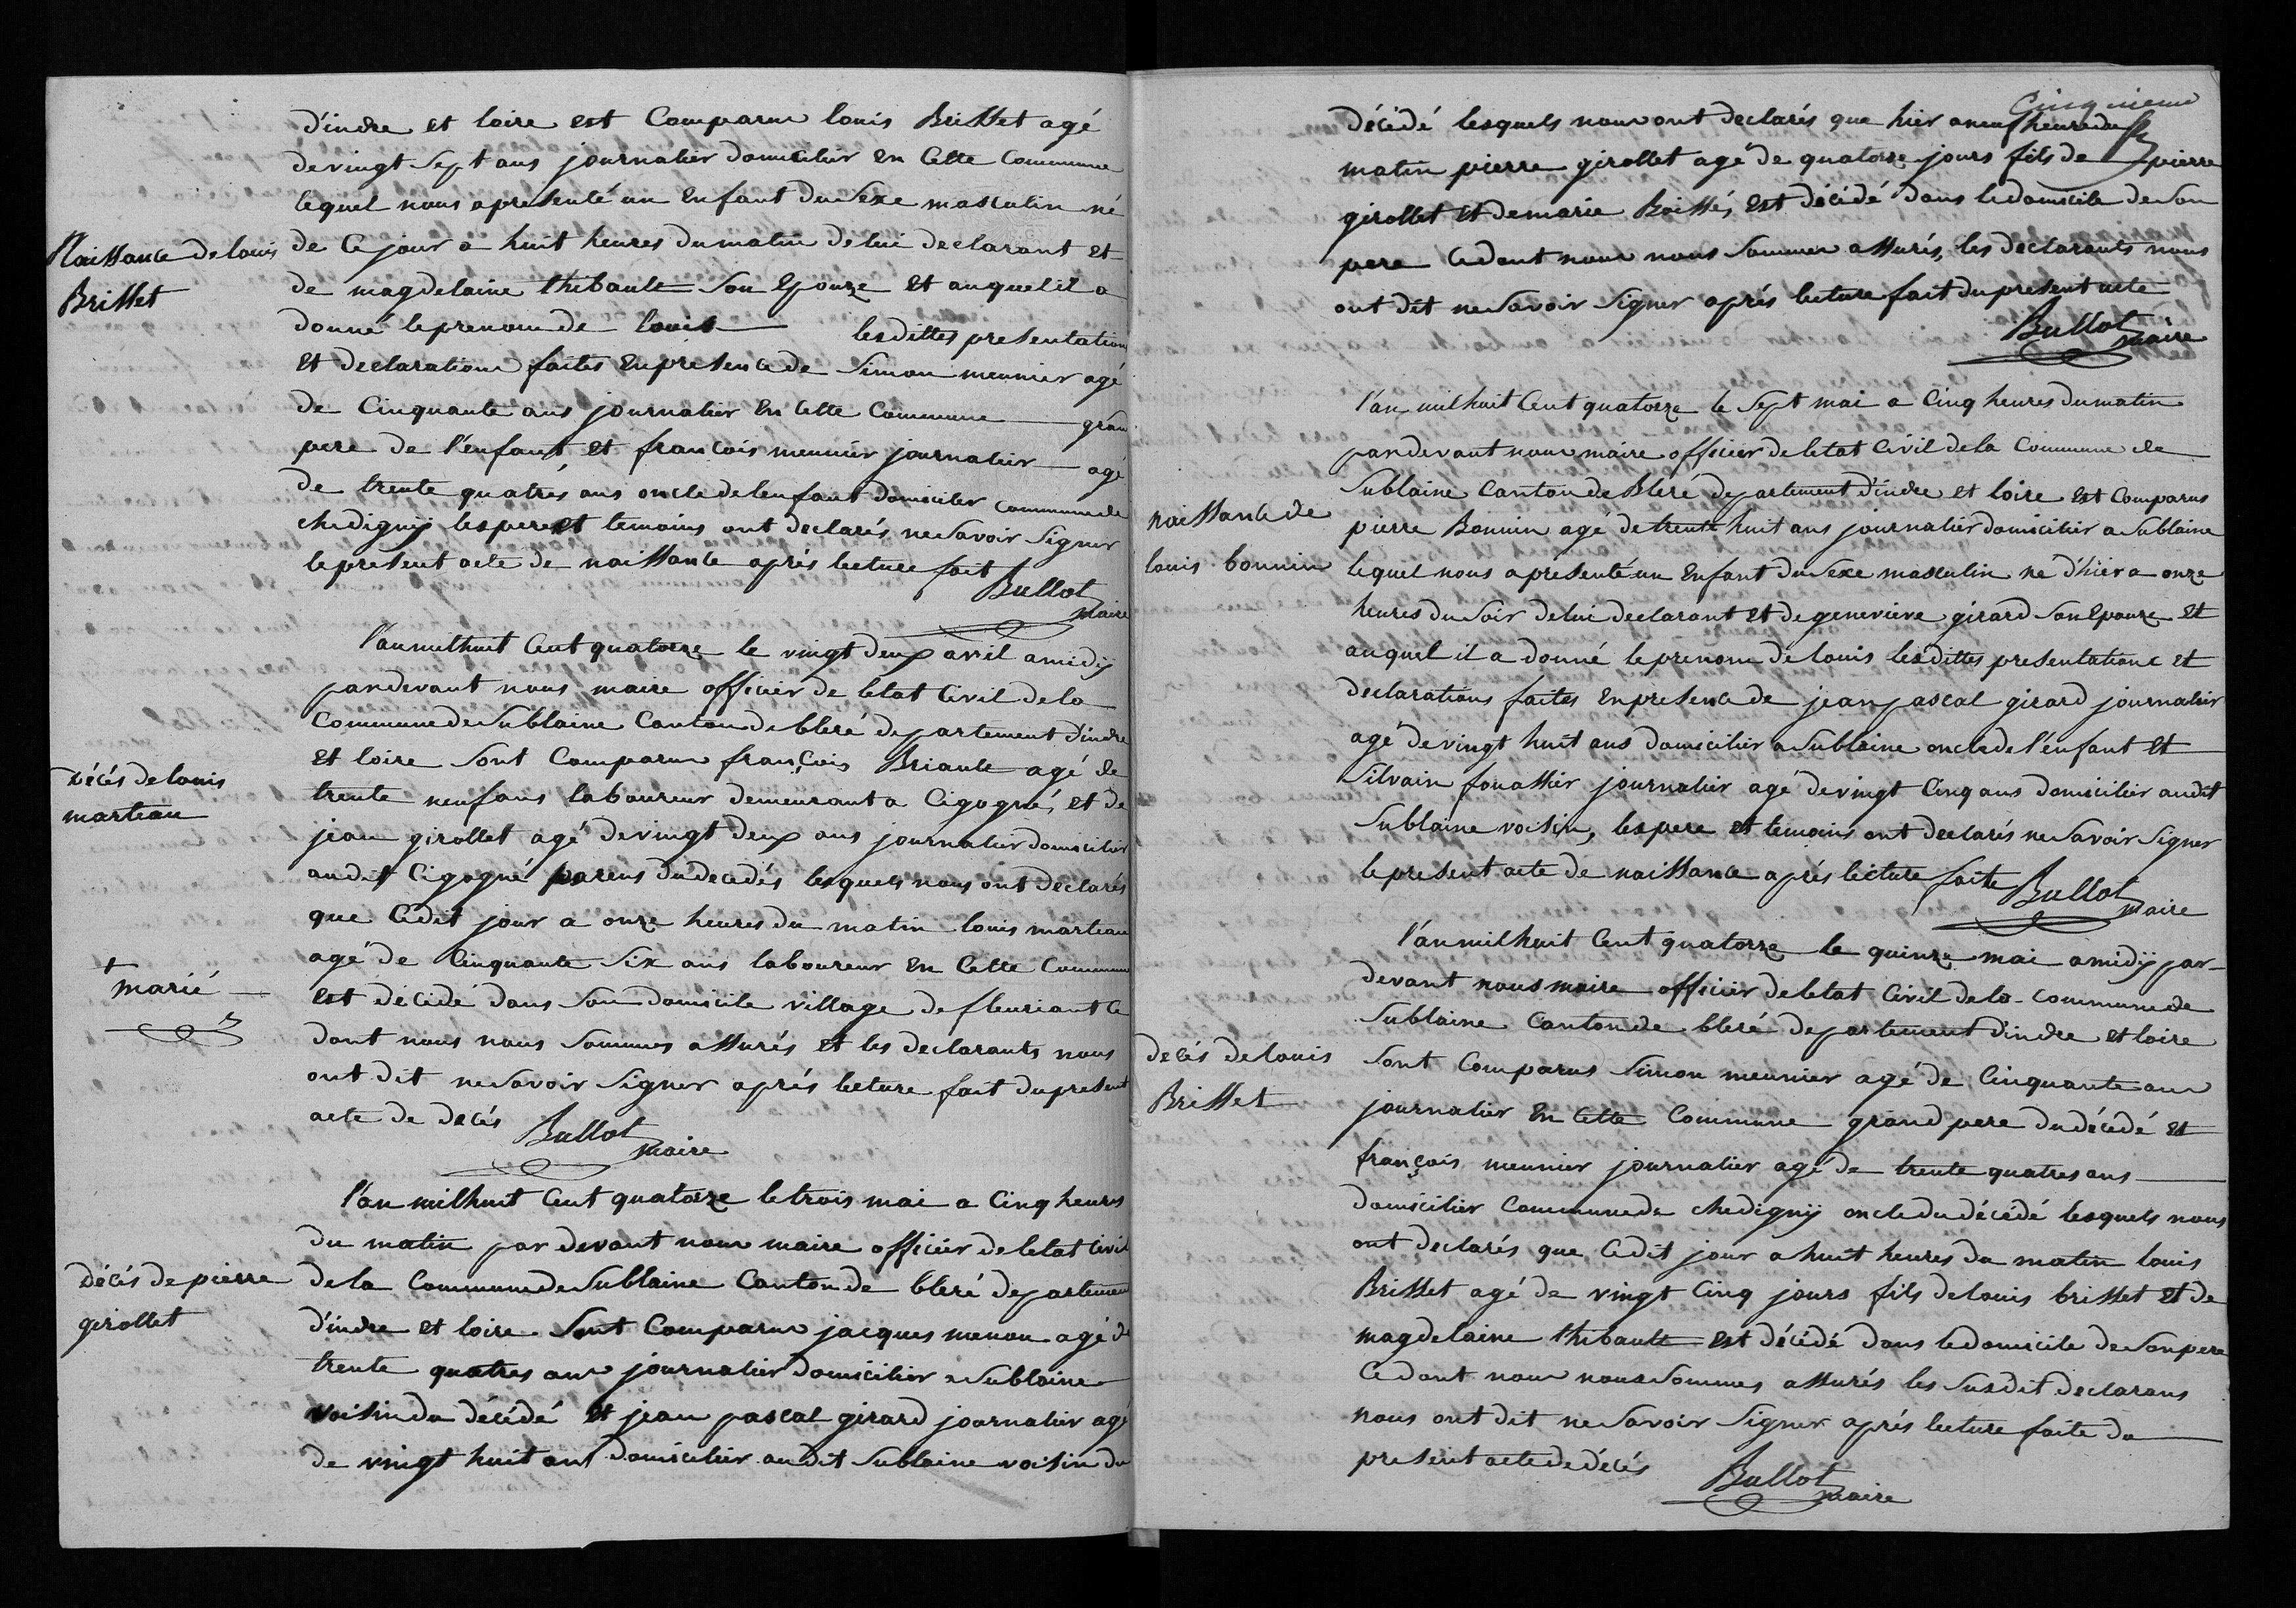 d'indre et loire est Comparu louis Brisset agé
de vingt Sept ans journalier domicilier en Cette Commune
lequel nous a presenté un Enfant du Sexe masculin né
de Ce jour a huit heures du matin de lui declarant et
Naissance de louis
Brisset
de magdelaine thibault Son Epouze et auquel il a
donné le prenom de louis lesdittes presentations
et declarations faites En presence de Simon meunier agé
de Cinquante ans journalier En Cette Commune grand
pere de l'enfant, et francois meunier journalier agé
de trente quatres ans oncle de lenfant domicilier commune de
chedignÿ les pere et temoins ont declarés ne Savoir Signer
le present acte de naissance aprés lecture fait
Bullot
maire
l'an mil huit Cent quatorze le vingt deux avril a midÿ
pardevant nous maire officier de letat Civil de la
Commune de Sublaine Canton de bleré departement d'indre
et loire Sont Comparus françois Briault agé de
trente neuf ans laboureur demeurant a Cigogné, et de
Décés de louis
marteau
jean girollet agé de vingt deux ans journalier domicilier
audit Cigogné parens du decedés lesquels nous ont declarés
que Cedit jour a onze heures du matin louis marteau
agé de Cinquante Six ans laboureur En Cette Commune
marié
est décédé dans Son domicile village de fleuriant Ce
dont nous nous Sommes assurés et les declarants nous
ont dit ne Savoir Signer aprés lecture fait du present
acte de decés
Bullot
maire
l'an mil huit Cent quatorze le trois mai a Cinq heures
du matin par devant nous maire officier de letat Civil
Décés de pierre
girollet
de la Commune de Sublaine Canton de bleré departement
d'indre et loire Sont Comparus jacques menou agé de
trente quatres ans journalier domicilier a Sublaine
voisin du décédé et jean pascal girard journalier agé
de vingt huit ans domicilier audit Sublaine voisin du
Cinquieme
décédé lesquels nous ont declarés que hier a neuf heure du
matin pierre girollet agé de quatorze jours fils de pierre
girollet et de marie Boissés est décédé dans le domicile de Son
pere Ce dont nous nous Sommes assurés, les declarants nous
ont dit ne Savoir Signer aprés lecture fait du present acte
Bullot
maire
l'an mil huit Cent quatorze le Sept mai a Cinq heures du matin
pardevant nous maire officier de letat Civil de la Commune de
Sublaine Canton de Bleré departement d'indre et loire est Comparus
naissance de
louis bonnin
pierre Bonnin agé de trente huit ans journalier domicilier a Sublaine
lequel nous a presenté un Enfant du Sexe masculin né d'hier a onze
heures du Soir de lui declarant et de genevieve girard Son Epouze et
auquel il a donné le prenom de louis lesdittes presentations et
declarations faites En presence de jean pascal girard journalier
agé de vingt huit ans domicilier a Sublaine oncle de l'enfant et
Silvain fouassier journalier agé de vingt Cinq ans domicilier audit
Sublaine voisin, les pere et temoins ont declarés ne Savoir Signer
le present acte de naissance aprés lecture faite
Bullot
maire
l'an mil huit Cent quatorze le quinze mai a midÿ par
devant nous maire officier de letat Civil de la commune de
Sublaine Canton de bleré departement d'indre et loire
decés de louis
Brisset
Sont Comparus Simon meunier agé de Cinquante ans
journalier En Cette Commune grand pere du décédé et
françois meunier journalier agé de trente quatres ans
domicilier Commune de chedignÿ oncle du décédé lesquels nous
ont declarés que Cedit jour a huit heures du matin louis
Brisset agé de vingt Cinq jours fils de louis brisset et de
magdelaine thibault est décédé dans le domicile de Son pere
Ce dont nous nous Sommes assurés les Susdit declarans
nous ont dit ne Savoir Signer aprés lecture faite du
present acte de décés
Bullot
maire